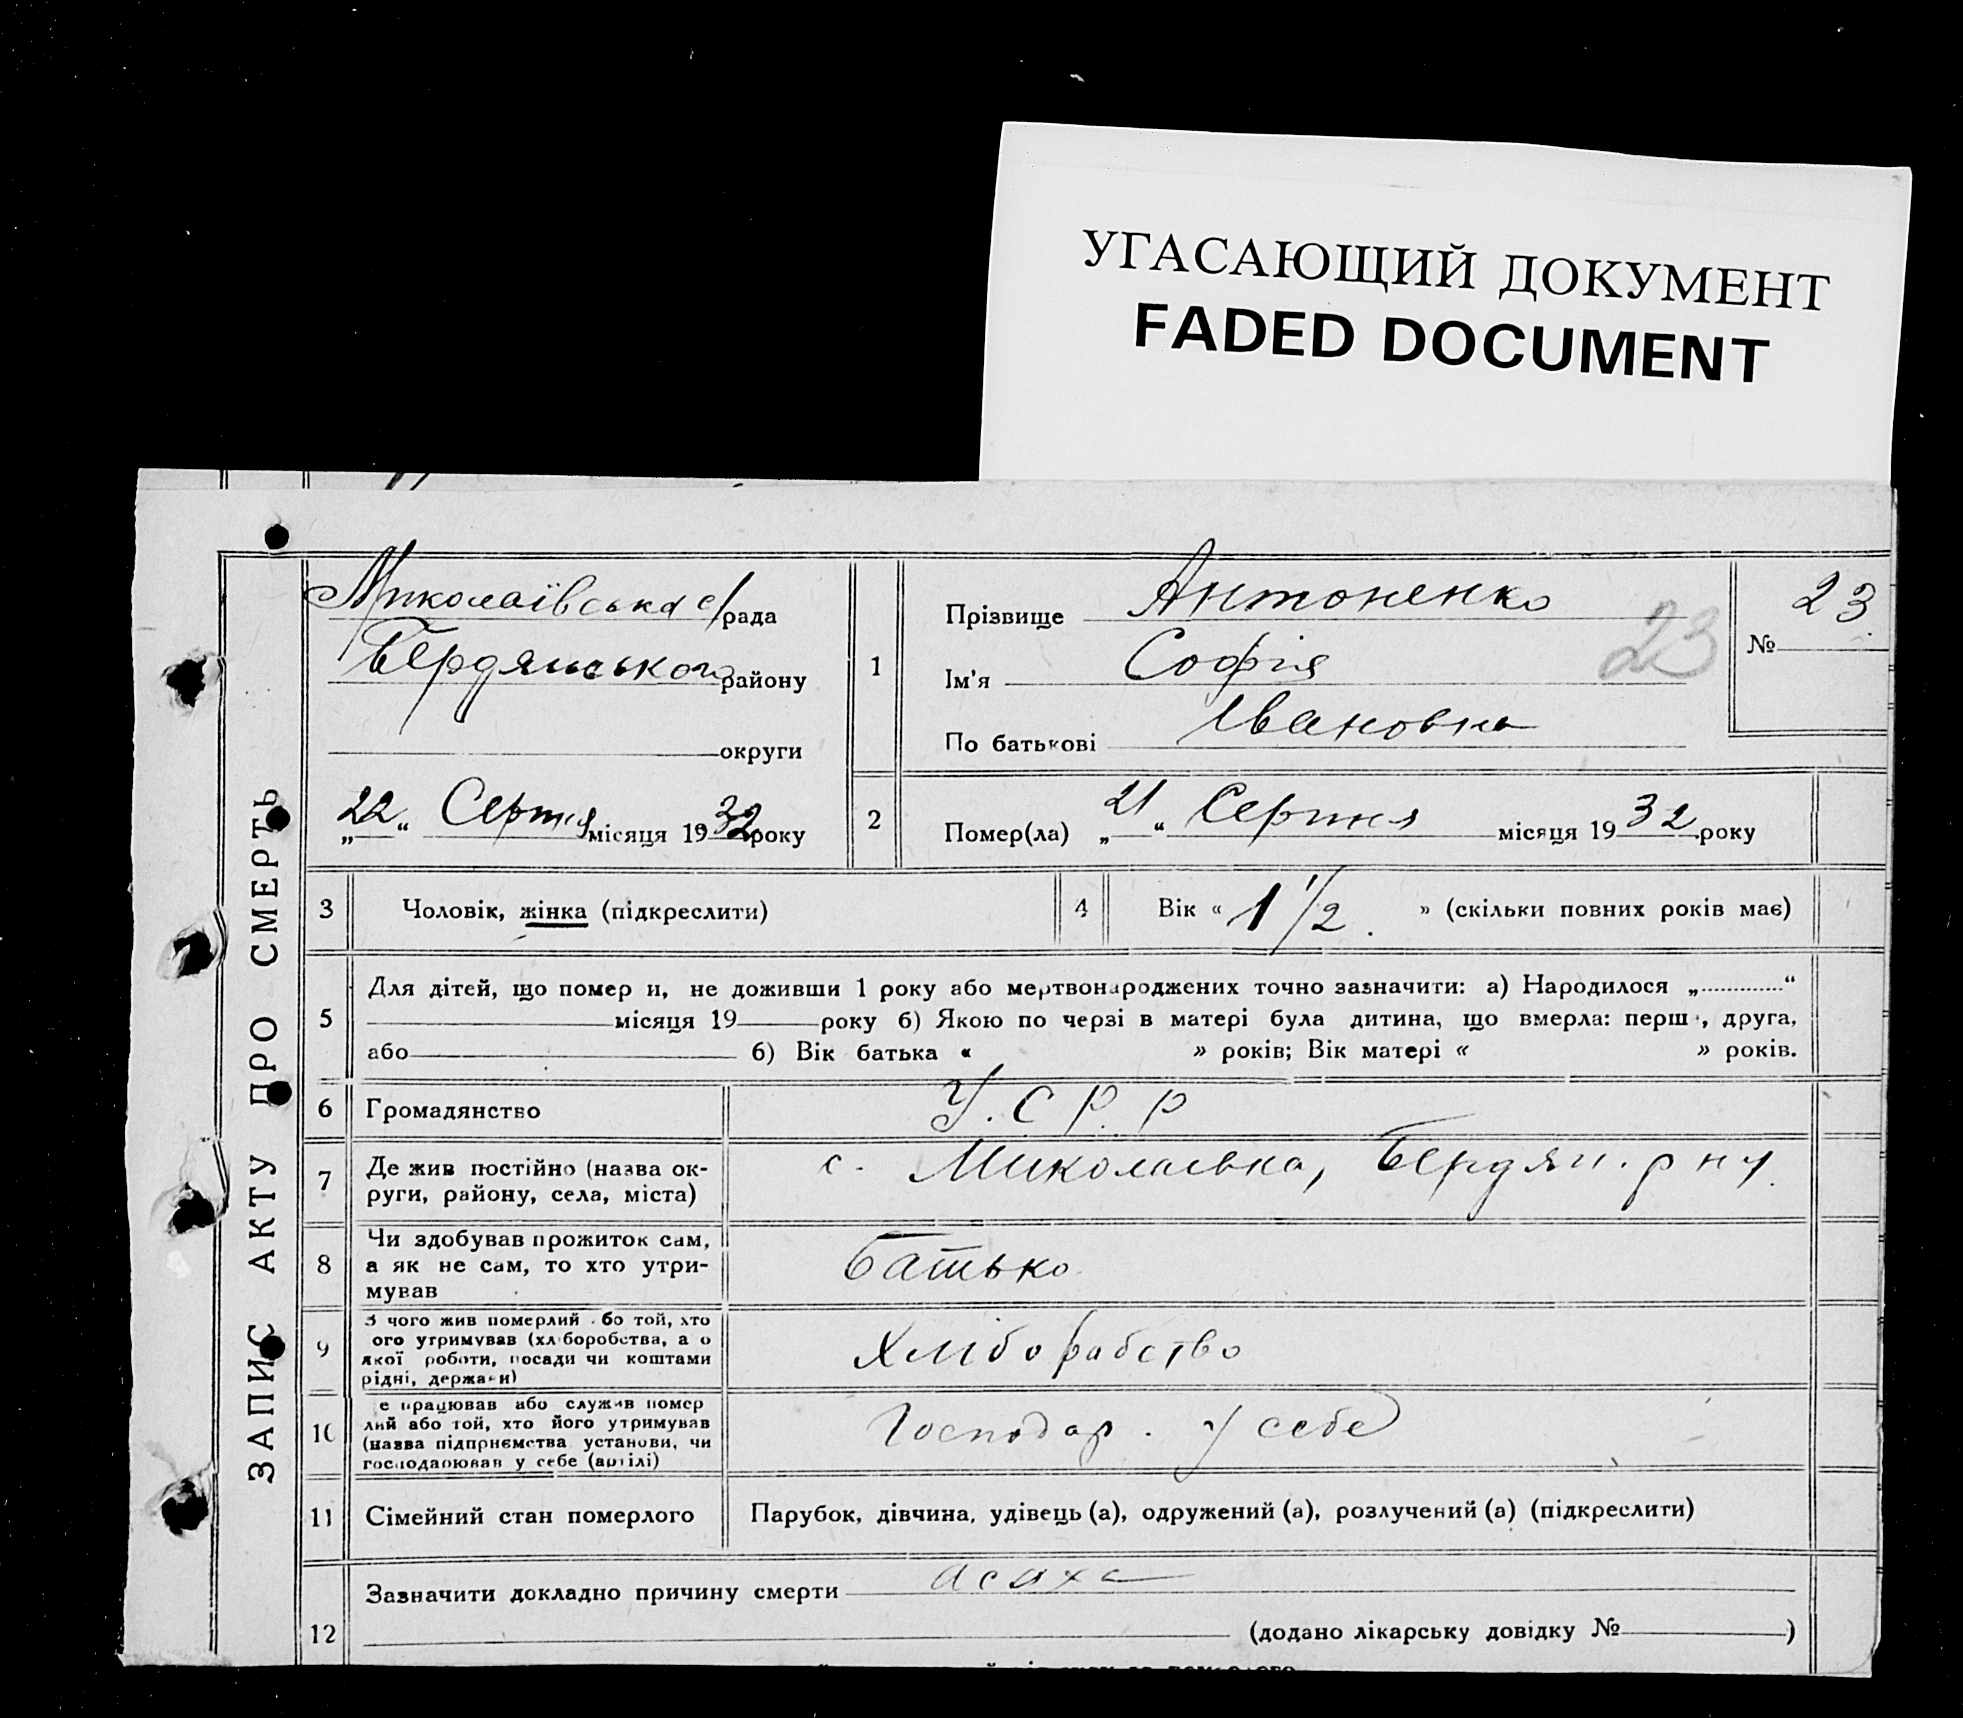 УГАСАЮЩИЙ ДОКУМЕНТ
FADED DOCUMENT
ЗАПИС АКТУ ПРО СМЕРТЬ
Миколаївська с/рада
Бердянського району
округи
„22“ Серпня місяця 1932 року
1
Прізвище Антоненко
Ім'я Софія
По батькові Івановна
23
№ 23
2
Помер(ла) „21“ Серпня місяця 1932 року
3 Чоловік, жінка (підкреслити)
4 Вік « 1 1/2. » (скільки повних років має)
5
Для дітей, що помер и, не доживши 1 року або мертвонароджених точно зазначити: а) Народилося „ “
місяця 19 року б) Якою по черзі в матері була дитина, що вмерла: перш , друга,
або б) Вік батька « » років; Вік матері « » років.
6 Громадянство У.С.Р.Р
7 Де жив постійно (назва ок-
руги, району, села, міста)
с. Миколаевка, Бердян. р ну.
8 Чи здобував прожиток сам,
а як не сам, то хто утри-
мував
батько
9 З чого жив померлий бо той, хто
ого утримував (хл боробства, а о
якої роботи, посади чи коштами
рідні, держави)
Хліборобство
10 е працював або служив помер
лий або той, хто його утримував
(назва підприємства установи, чи
господарював у себе (артілі)
Господар. у себе
11 Сімейний стан померлого
Парубок, дівчина, удівець (а), одружений (а), розлучений (а) (підкреслити)
12 Зазначити докладно причину смерти
(додано лікарську довідку № )